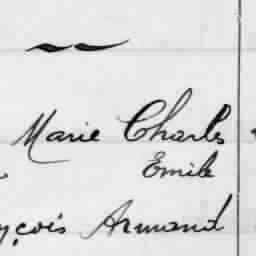 Marie Charles
Emile
nçois Armand